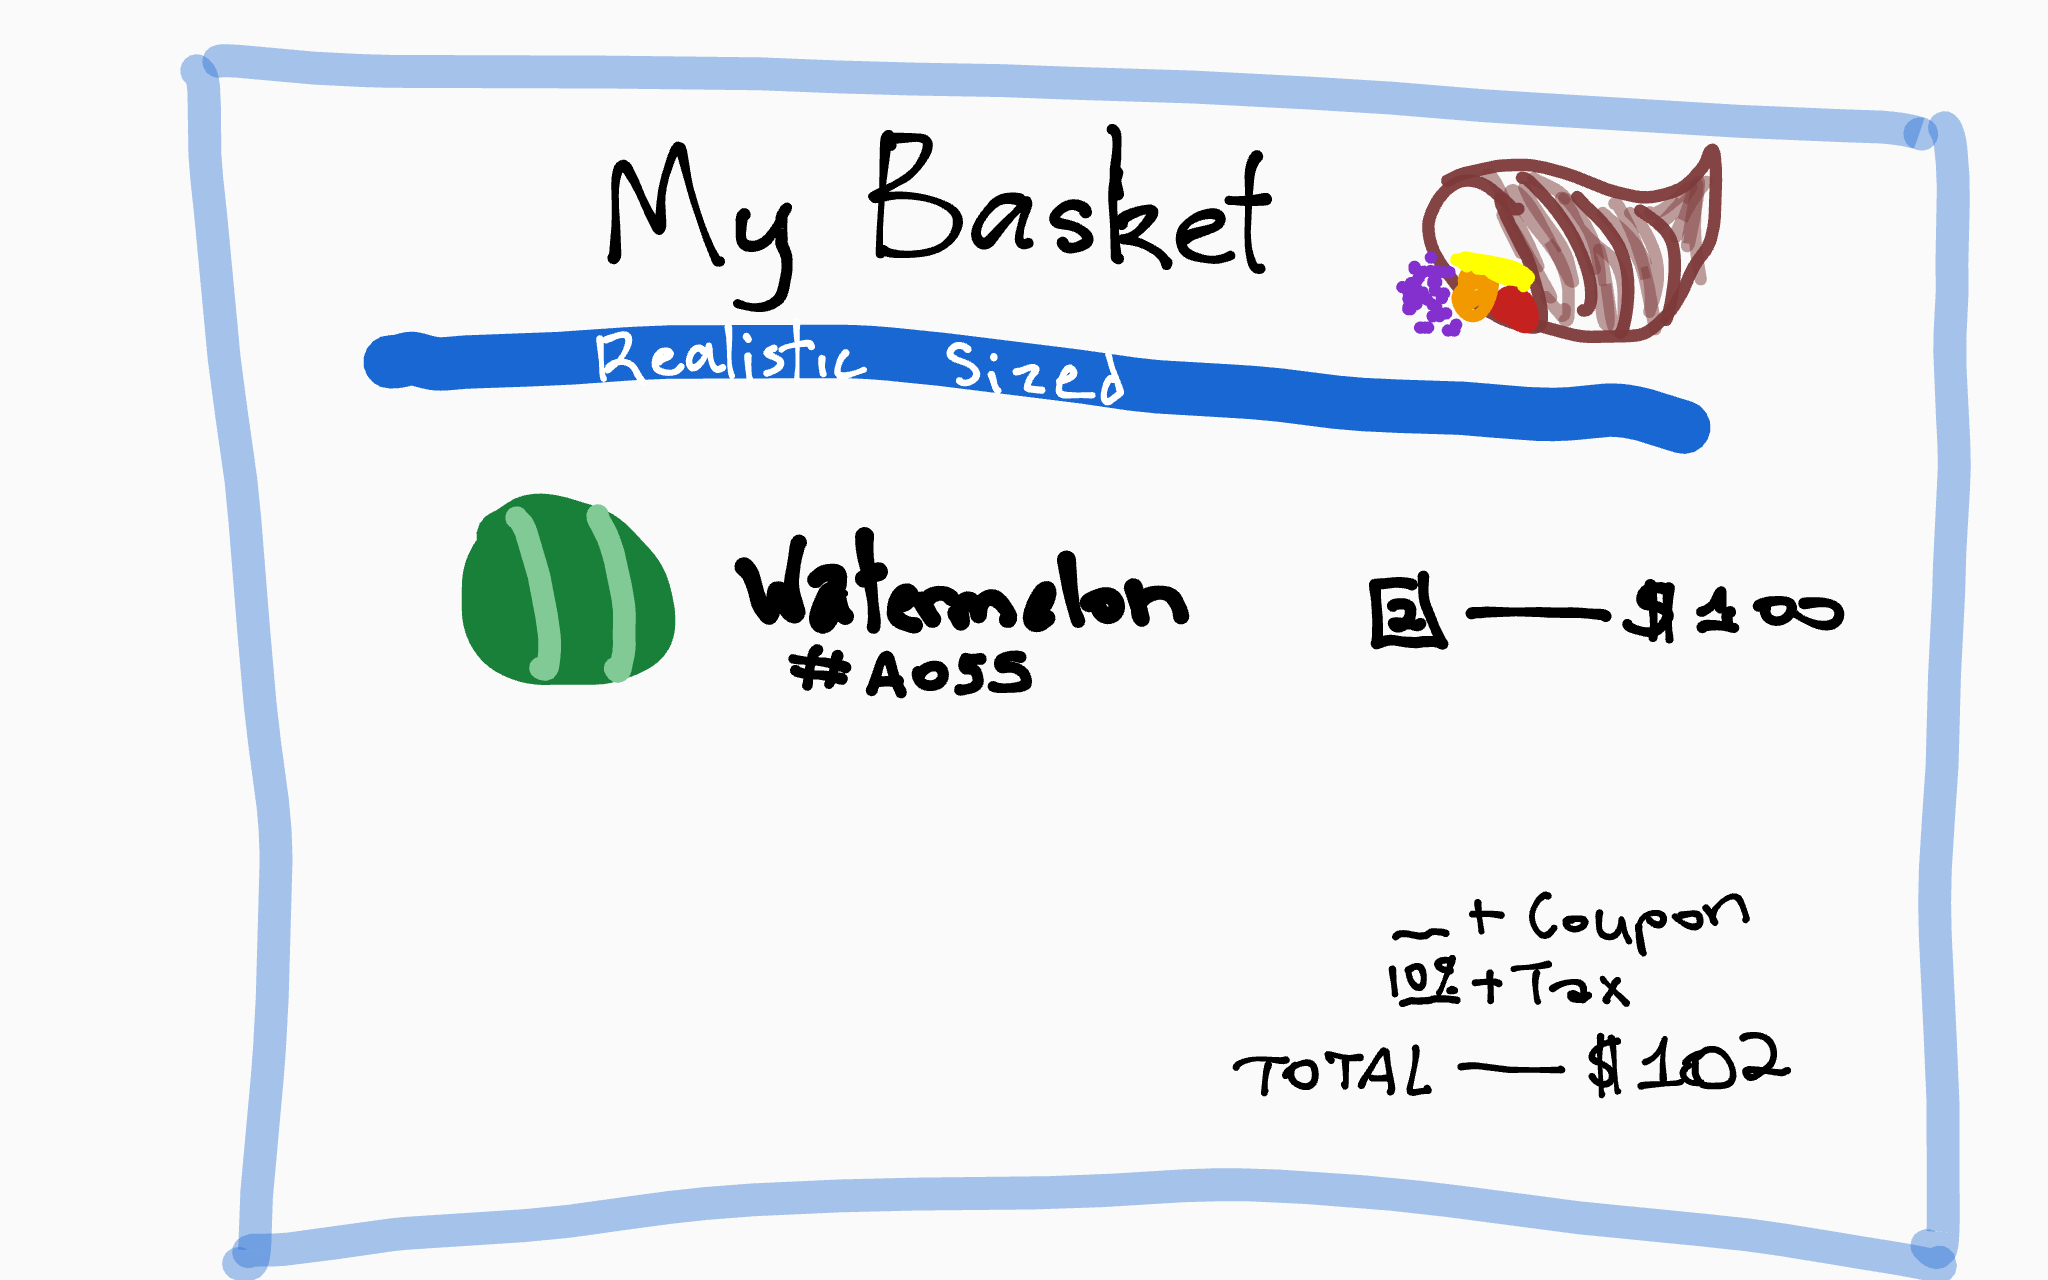 My Basket
Realistic Sized
Watermelon 2 — $100
#A055
_ + Coupon
10% + Tax
TOTAL — $102